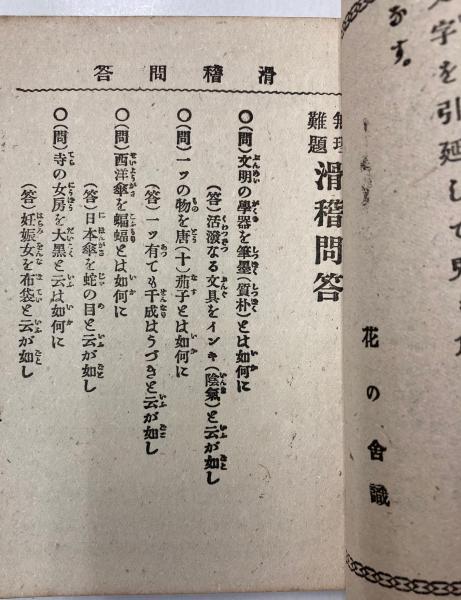 字を引廻して兄
なす。
花の舍識
滑稽問答
無理難題 滑稽問答
〇(問)文明の學器を筆墨(質朴)とは如何に
(答)活潑なる文具をインキ(陰氣)と云が如し
〇(問)一ツの物を唐(十)茄子とは如何に
(答)一ツ有ても千成はうづきと云が如し
〇(問)西洋傘を蝙蝠とは如何に
(答)日本傘を蛇の目と云が如し
〇(問)寺の女房を大黑と云は如何に
(答)妊娠女を布袋と云が如し